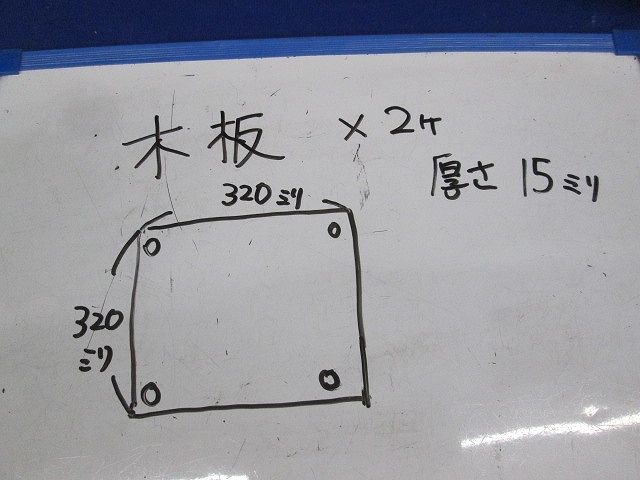 木板 ×2ヶ
厚さ 15ミリ
320ミリ
320
ミリ